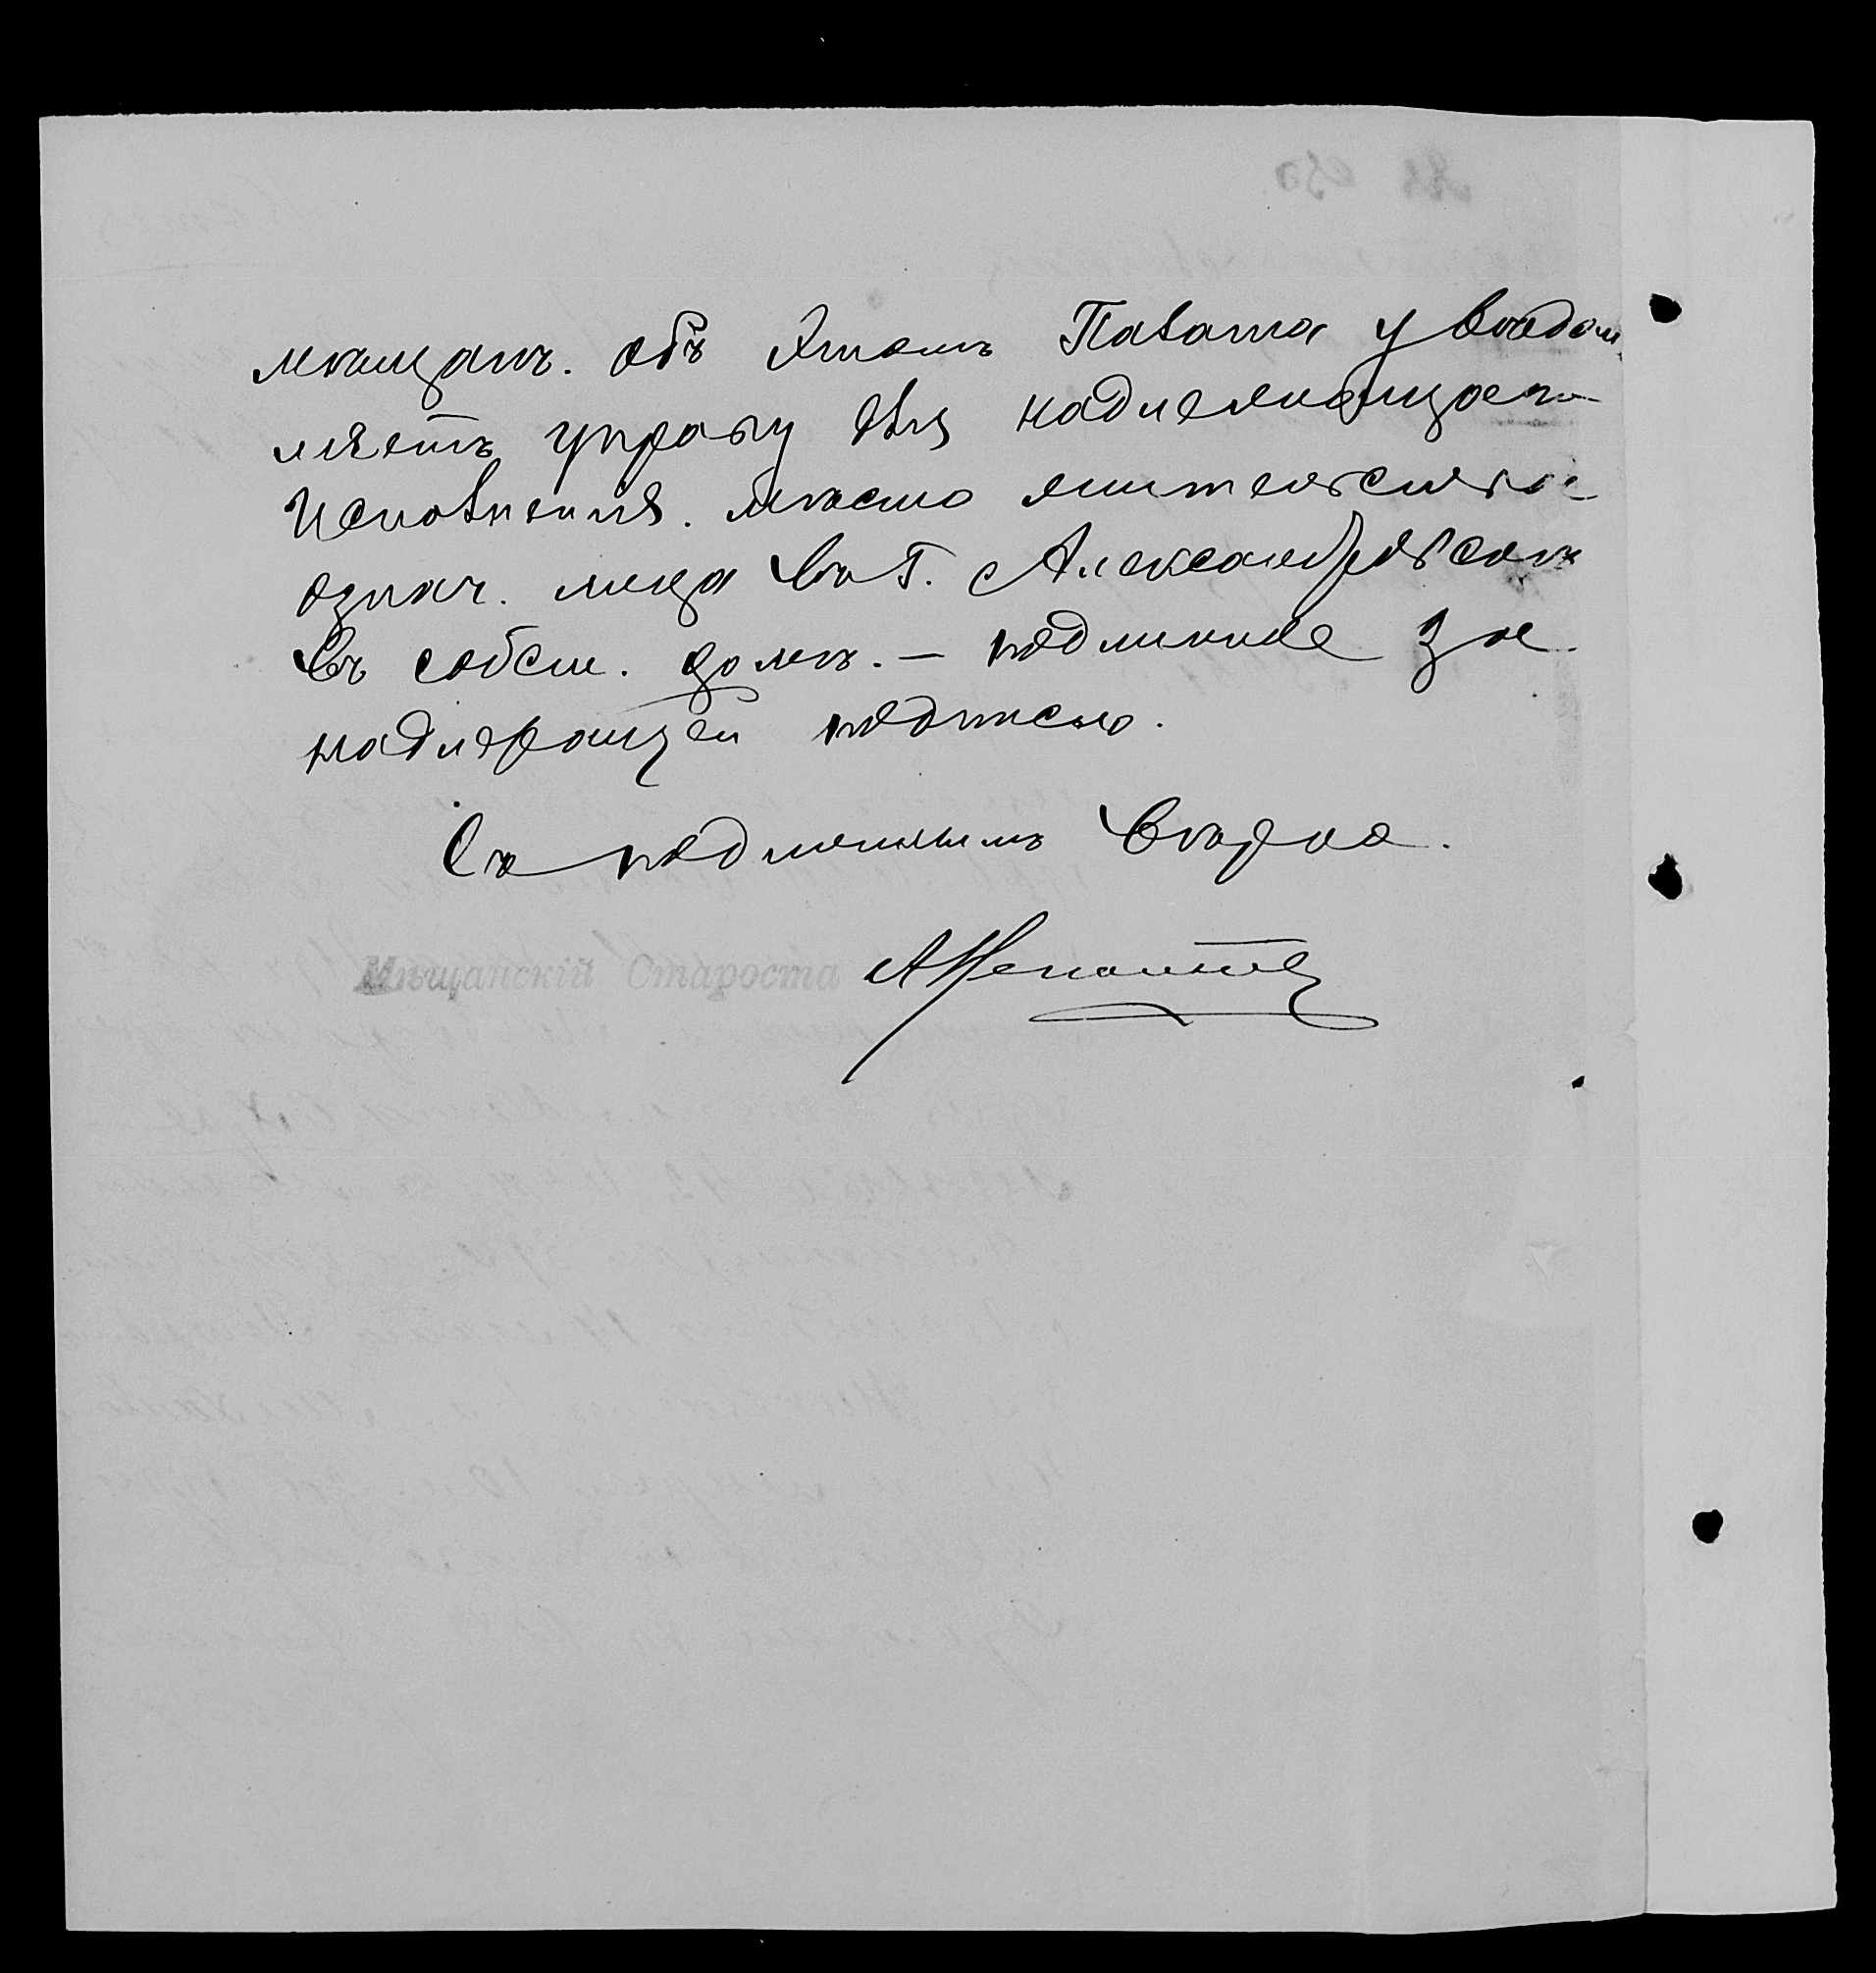 мѣщанъ. Объ этомъ Палата увѣдом-
ляетъ управу для надлежащаго
исполненія. Мѣсто жительства
означ. лица въ г. Александровскѣ
въ собств. домѣ. — подлинное за
надлежащей подписью.
Съ подлиннымъ вѣрно.
Мѣщанскій Староста